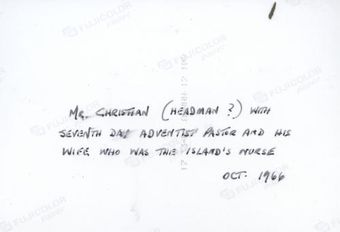 Mr. CHRISTIAN (HEADMAN ?) WITH
SEVENTH DAY ADVENTIST PASTOR AND HIS
WIFE WHO WAS THE ISLAND'S NURSE
OCT. 1966
FUJICOLOR